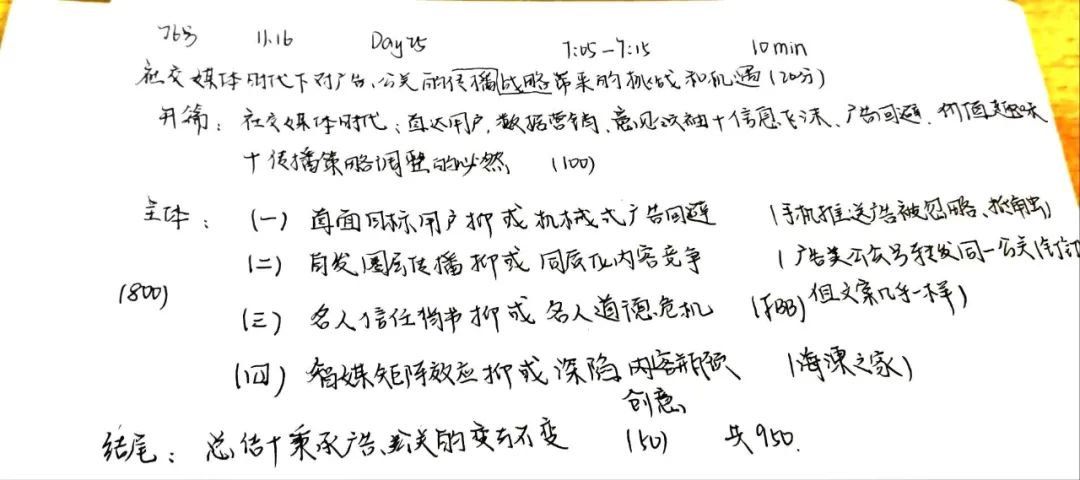 76号 11.16 Day 25 7:05-7:15 10min
社交媒体时代下对广告、公关的传播战略带来的挑战和机遇(20分)
开篇：社交媒体时代：直达用户、数据营销、意见领袖+信息飞沫、广告回避、价值趣味
+传播策略调整的必然 (100)
主体：(一) 直面目标用户抑或机械式广告回避 (手机推送广告被忽略、抵触)
(二) 自发圈层传播抑或同质化内容竞争 (广告类公众号转发同一公关
(800) 但文案几乎一样)
(三) 名人信任背书抑或名人道德危机 (FBB)
(四) 智媒矩阵效应抑或深陷内容瓶颈 (海澜之家)
创意
结尾：总结+秉承广告、公关的变与不变 (50) 共950.